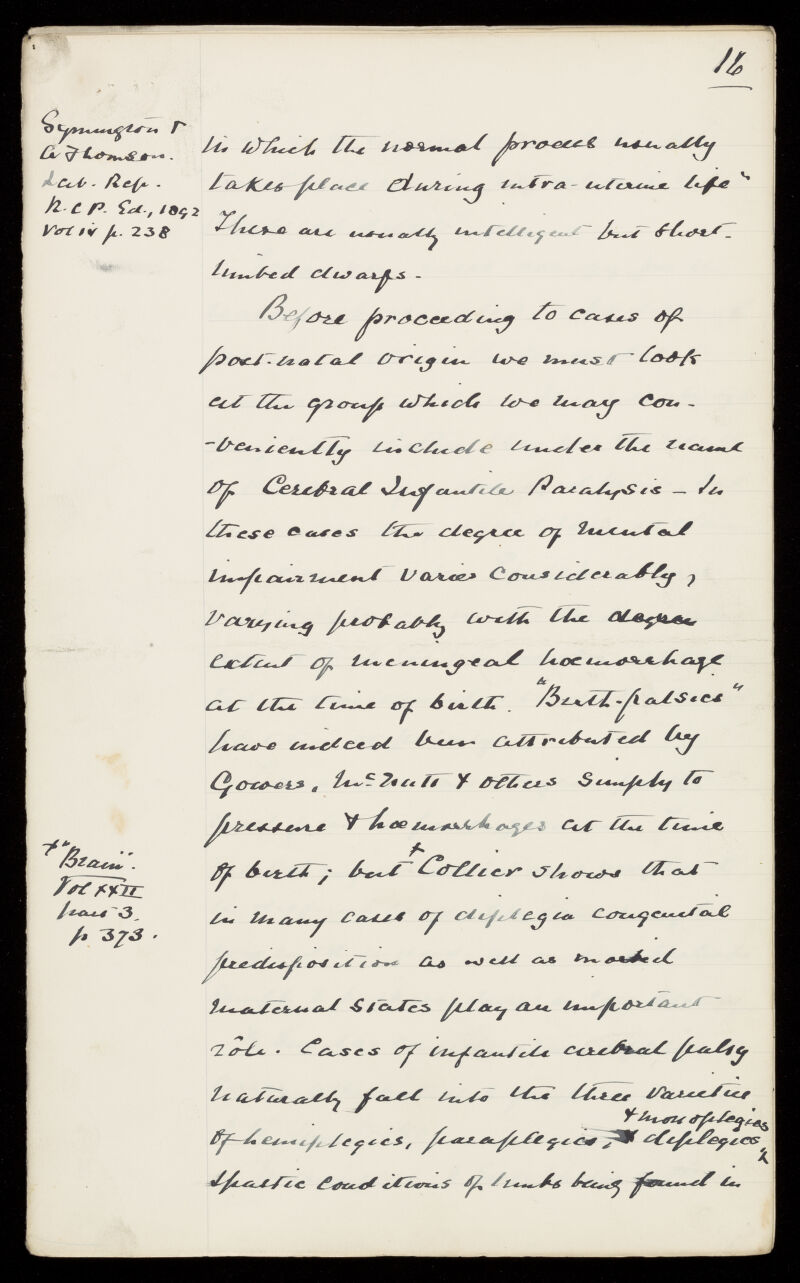 16
Symington &
A Thomson.
Lab. Rep.
R.C.P. Ed., 1892
Vol iv p. 238
in which the normal process usually
takes place during intra-uterine life"
These are usually intelligent but short-
limbed dwarfs.
Before proceeding to cases of
post-natal origin we must look
at the group which we may con-
-veniently include under the name
of Cerebral Infantile Paralysis – In
these cases the degree of mental
impairment varies considerably,
varying probably with the degree
extent of meningeal hœmorrhage
at the time of birth. "Birth-palsies"
have indeed been attributed by
Gowers, McNutt & others simply to
pressure & hœmorrhages at the time
of birth; but + Collier shows that
in many cases of diplegia congenital
predisposition as well as morbid
maternal states play an important
rôle. Cases of infantile cerebral palsy
naturally fall into the three varieties
& monoplegies
of hemiplegies, paraplegies, & diplegies
spastic conditions of limbs being found in
+ "Brain".
Vol XXII
part 3.
p 373.